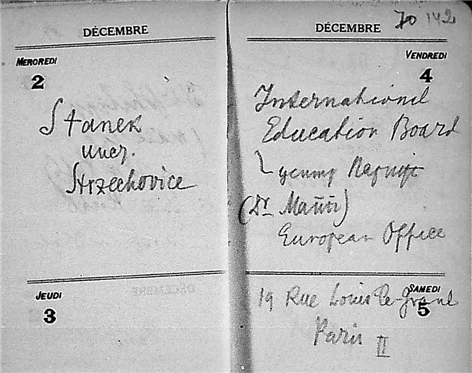 DÉCEMBRE
MERCREDI
2
Stanek
Strzechovice
JEUDI
3
70 142
DÉCEMBRE
VENDREDI
4
International
Education Board
(Dr
European Office
SAMEDI
5
19 Rue Louis le Grand
Paris II